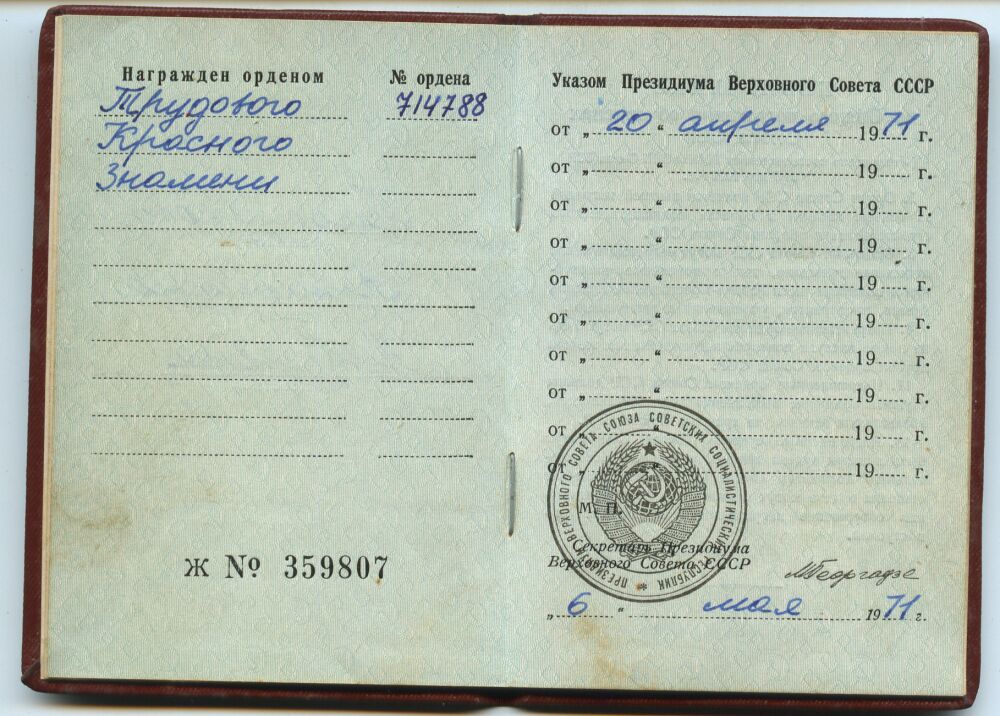 Награжден орденом № ордена
Трудового 714788
Красного
Знамени
Ж № 359807
Указом Президиума Верховного Совета СССР
от „ 20 “ апреля 1971 г.
от „ “ 19 г.
от „ “ 19 г.
от „ “ 19 г.
от „ “ 19 г.
от „ “ 19 г.
от „ “ 19 г.
от „ “ 19 г.
от „ “ 19 г.
от „ “ 19 г.
ПРЕЗИДИУМ ВЕРХОВНОГО СОВЕТА СОЮЗА СОВЕТСКИХ СОЦИАЛИСТИЧЕСКИХ РЕСПУБЛИК *
М. П.
Секретарь Президиума
Верховного Совета СССР МГеоргадзе
„ 6 “ мая 1971 г.